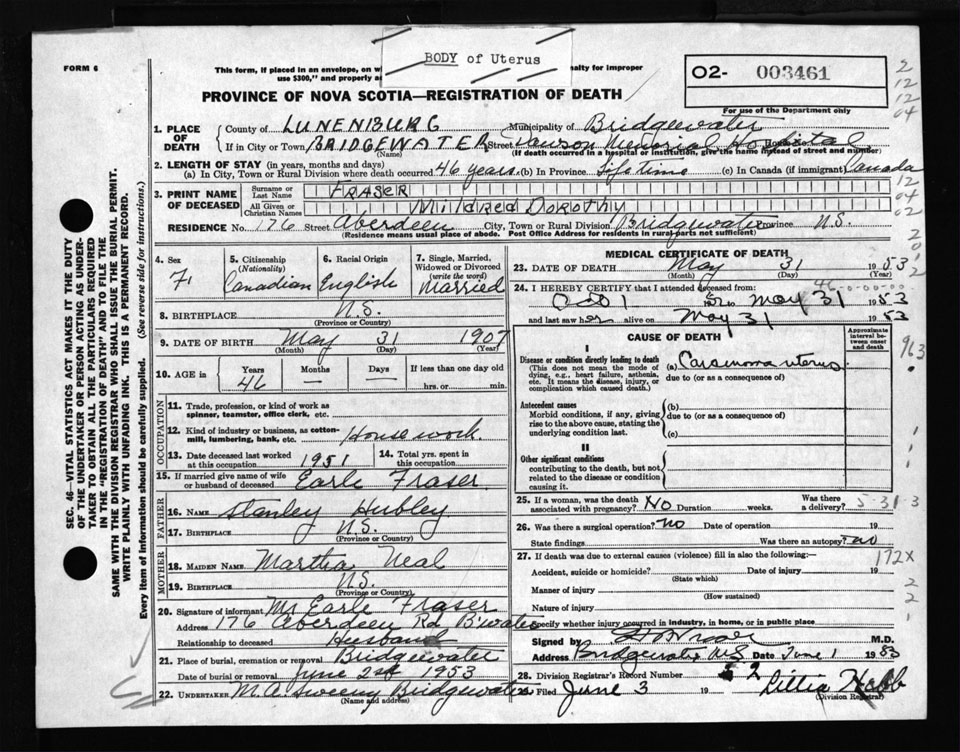 BODY of Uterus
FORM 6
This form, if placed in an envelope, on wh
alty for improper
use $300," and properly a
O2- 003461
PROVINCE OF NOVA SCOTIA—REGISTRATION OF DEATH
For use of the Department only
2
12
12
04
1. PLACE OF DEATH
County of LUNENBURG Municipality of Bridgewater
If in City or Town BRIDGEWATER Street Dawson Memorial Hospital
(Name) (If death occurred in a hospital or institution, give the name instead of street and number)
2. LENGTH OF STAY (in years, months and days)
(a) In City, Town or Rural Division where death occurred 46 years (b) In Province Life Time (c) In Canada (if immigrant) Canada
3. PRINT NAME OF DECEASED
Surname or Last Name FRASER
All Given or Christian Names Mildred Dorothy
12
04
02
RESIDENCE No. 176 Street Aberdeen City, Town or Rural Division Bridgewater Province N.S.
(Residence means usual place of abode. Post Office Address for residents in rural parts not sufficient)
SEC. 46—VITAL STATISTICS ACT MAKES IT THE DUTY
OF THE UNDERTAKER OR PERSON ACTING AS UNDER-
TAKER TO OBTAIN ALL THE PARTICULARS REQUIRED
IN THE "REGISTRATION OF DEATH" AND TO FILE THE
SAME WITH THE DIVISION REGISTRAR WHO SHALL ISSUE THE BURIAL PERMIT.
WRITE PLAINLY WITH UNFADING INK. THIS IS A PERMANENT RECORD.
Every item of information should be carefully supplied. (See reverse side for instructions.)
4. Sex
F
5. Citizenship
(Nationality)
Canadian
6. Racial Origin
English
7. Single, Married, Widowed or Divorced
(write the word)
Married
8. BIRTHPLACE N.S.
(Province or Country)
9. DATE OF BIRTH May 31 1907
(Month) (Day) (Year)
10. AGE in Years Months Days If less than one day old
46 — — hrs. or min.
OCCUPATION
11. Trade, profession, or kind of work as
spinner, teamster, office clerk, etc.
12. Kind of industry or business, as cotton-
mill, lumbering, bank, etc. House work.
13. Date deceased last worked
at this occupation 1951
14. Total yrs. spent in
this occupation
15. If married give name of wife
or husband of deceased Earle Fraser
FATHER
16. NAME Stanley Hubley
17. BIRTHPLACE N.S.
(Province or Country)
MOTHER
18. MAIDEN NAME Martha Neal
19. BIRTHPLACE N.S.
(Province or Country)
20. Signature of informant Mr Earle Fraser
Address 176 Aberdeen Rd B'water
Relationship to deceased Husband
21. Place of burial, cremation or removal Bridgewater
Date of burial or removal June 2nd 1953
22. UNDERTAKER M.A. Sweeny Bridgewater
(Name and address)
MEDICAL CERTIFICATE OF DEATH
23. DATE OF DEATH May 31 1953
(Month) (Day) (Year)
24. I HEREBY CERTIFY that I attended deceased from:
46-0-00-00
Oct 1 to May 31 1953
and last saw her alive on May 31 1953
CAUSE OF DEATH
Approximate interval between onset and death
I
Disease or condition directly leading to death
(This does not mean the mode of
dying, e.g., heart failure, asthenia,
etc. It means the disease, injury, or
complication which caused death.)
(a) Carcinoma uterus
due to (or as a consequence of)
963
Antecedent causes
Morbid conditions, if any, giving
rise to the above cause, stating the
underlying condition last.
(b)
due to (or as a consequence of)
(c)
II
Other significant conditions
contributing to the death, but not
related to the disease or condition
causing it.
25. If a woman, was the death
associated with pregnancy? No Duration weeks. Was there
a delivery?
5-31-3
26. Was there a surgical operation? no Date of operation 19
State findings Was there an autopsy? no
27. If death was due to external causes (violence) fill in also the following:—
172X
Accident, suicide or homicide? Date of injury 19
(State which)
Manner of injury
(How sustained)
Nature of injury
Specify whether injury occurred in industry, in home, or in public place
Signed by M.D.
Address Bridgewater NS Date June 1 1953
28. Division Registrar's Record Number 52
29. Filed June 3 19 Lillia Hebb
(Division Registrar)